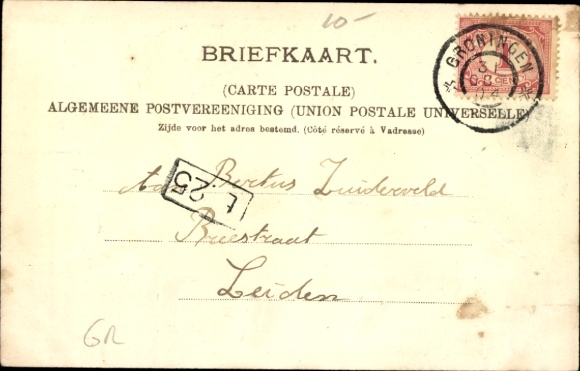 10-
BRIEFKAART.
(CARTE POSTALE)
ALGEMEENE POSTVEREENIGING (UNION POSTALE UNIVERSELLE)
Zijde voor het adres bestemd. (Côté réservé à Vadresse)
GRONINGEN
3
L 25
Bertus Zuiderveld
Breestraat
Leiden
GR